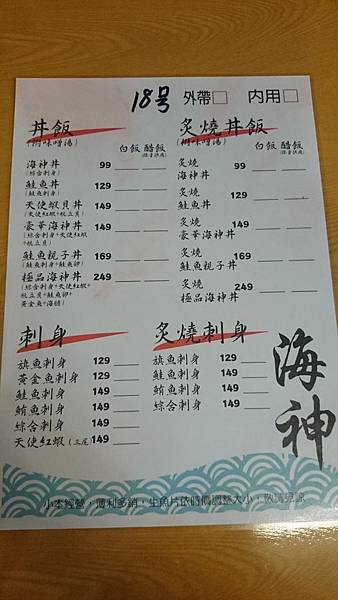 18号 外帶□ 内用□
丼飯
(附味噌湯)
白飯 醋飯
海神丼 99
(綜合刺身)
鮭魚丼 129
天使蝦貝丼 149
(天使紅蝦+秋立貝)
豪華海神丼 149
(綜合刺身+天使紅蝦
+秋立貝)
鮭魚親子丼 169
(鮭魚刺身+鮭魚卵)
極品海神丼 249
(綜合刺身+天使紅蝦+
秋立貝+鮭魚卵+
黃金魚+海膽)
炙燒丼飯
(附味噌湯)
白飯 醋飯
炙燒 99
海神丼
炙燒 129
鮭魚丼
炙燒 149
豪華海神丼
炙燒 169
鮭魚親子丼
炙燒 249
極品海神丼
刺身
旗魚刺身 129
黃金魚刺身 129
鮭魚刺身 149
鮪魚刺身 149
綜合刺身 149
天使紅蝦(三尾) 149
炙燒刺身
旗魚刺身 129
鮭魚刺身 149
鮪魚刺身 149
綜合刺身 149
海神
小本經營，薄利多銷，生魚片依時價調整大小，敬請見諒